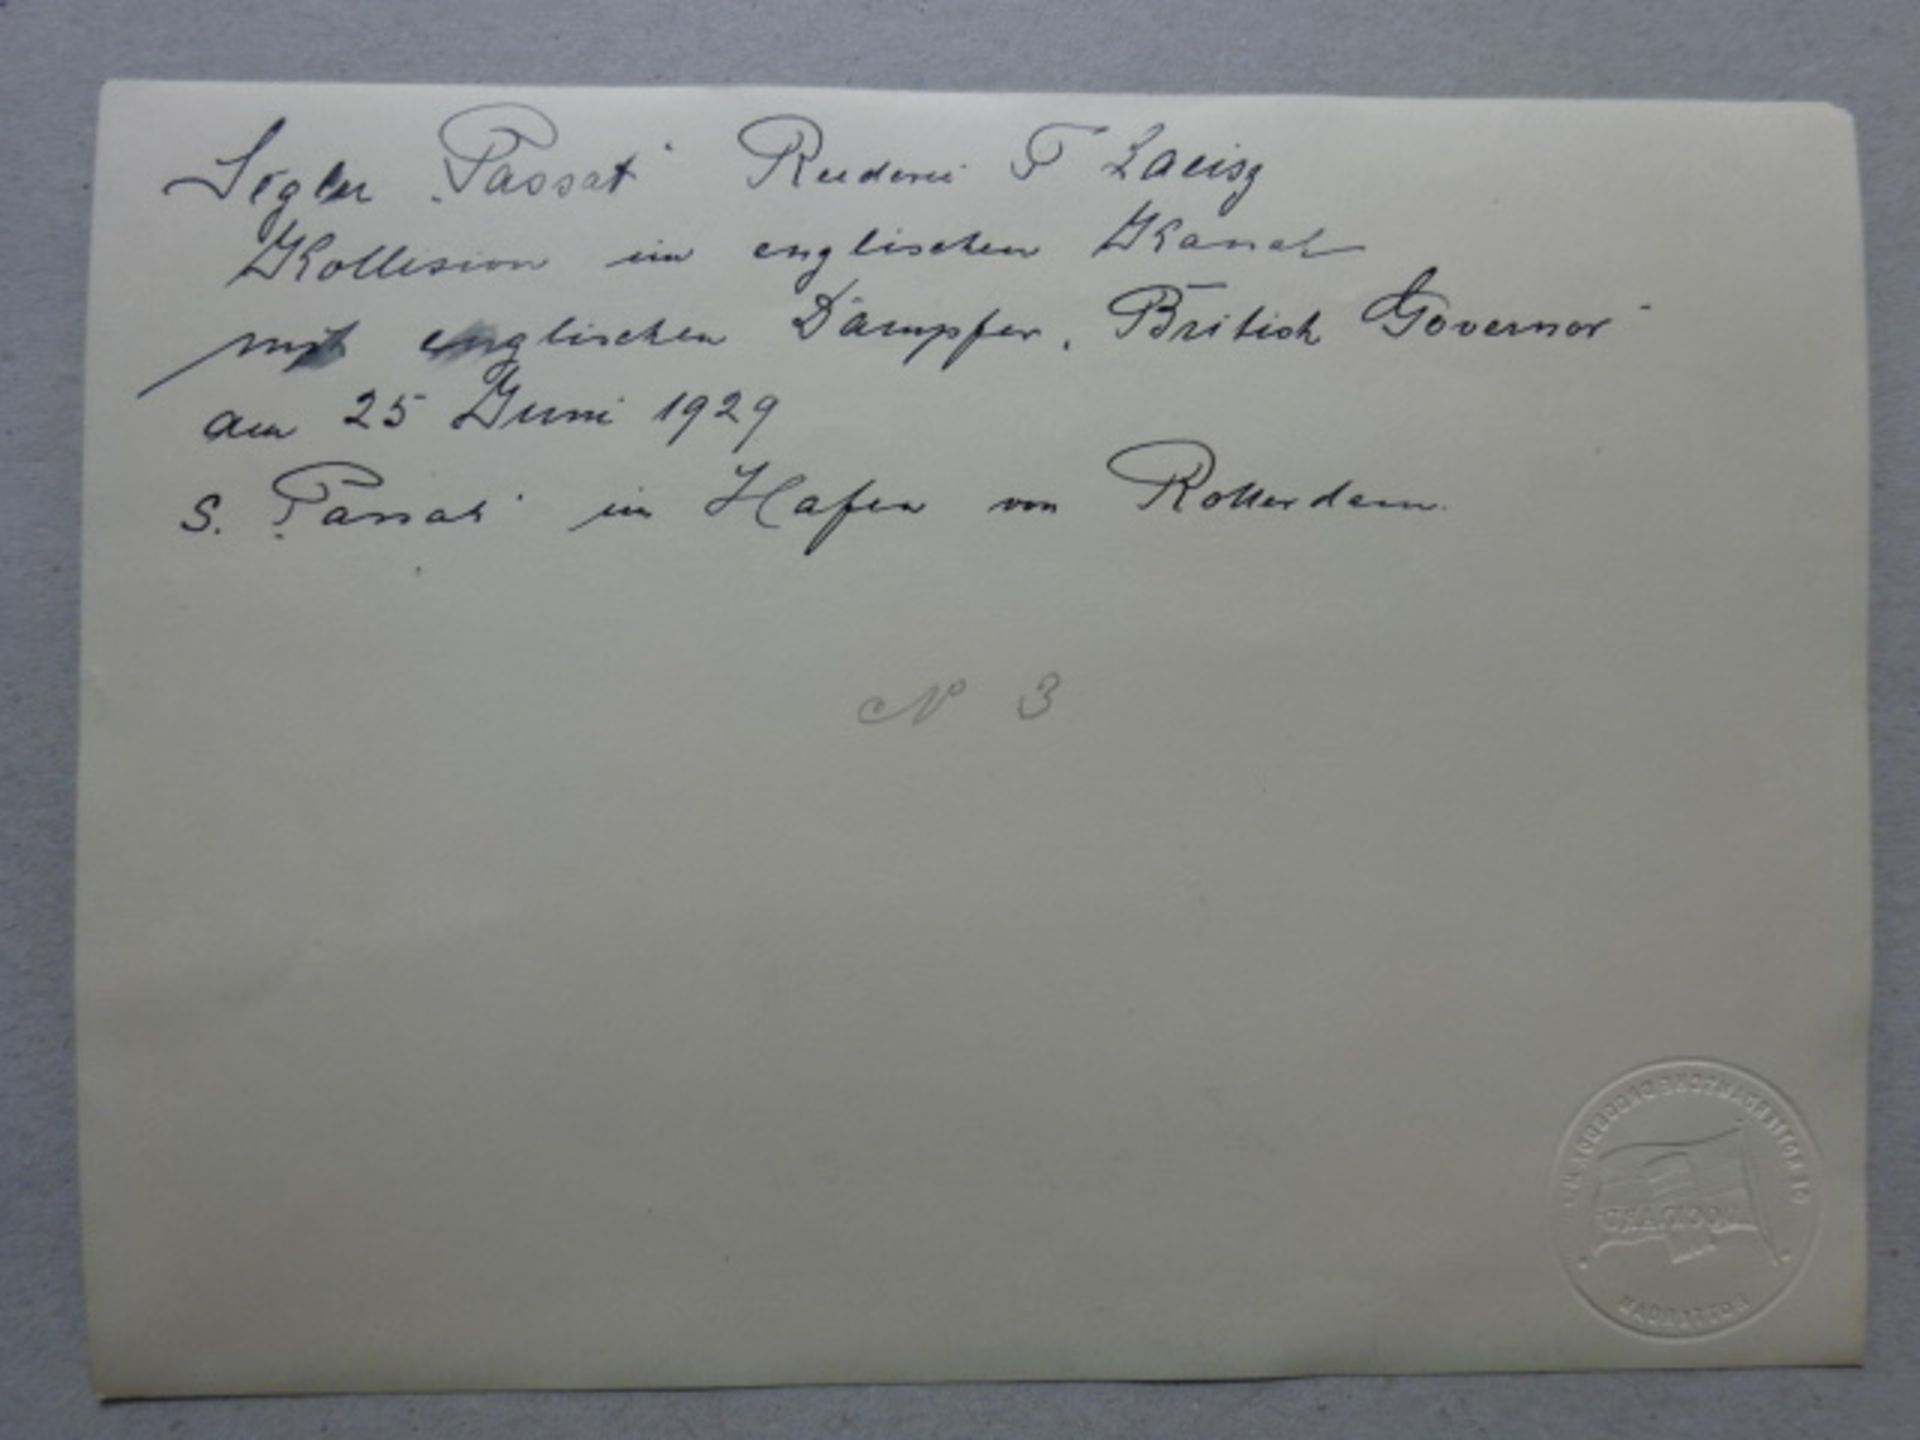 Segler „Passat" Reederei F Laeisz
Kollision im englischen Kanal
mit englischen Dampfer „British Governor"
am 25 Juni 1929
S. „Passat" im Hafen von Rotterdam.
N 3
ROTTERDAM